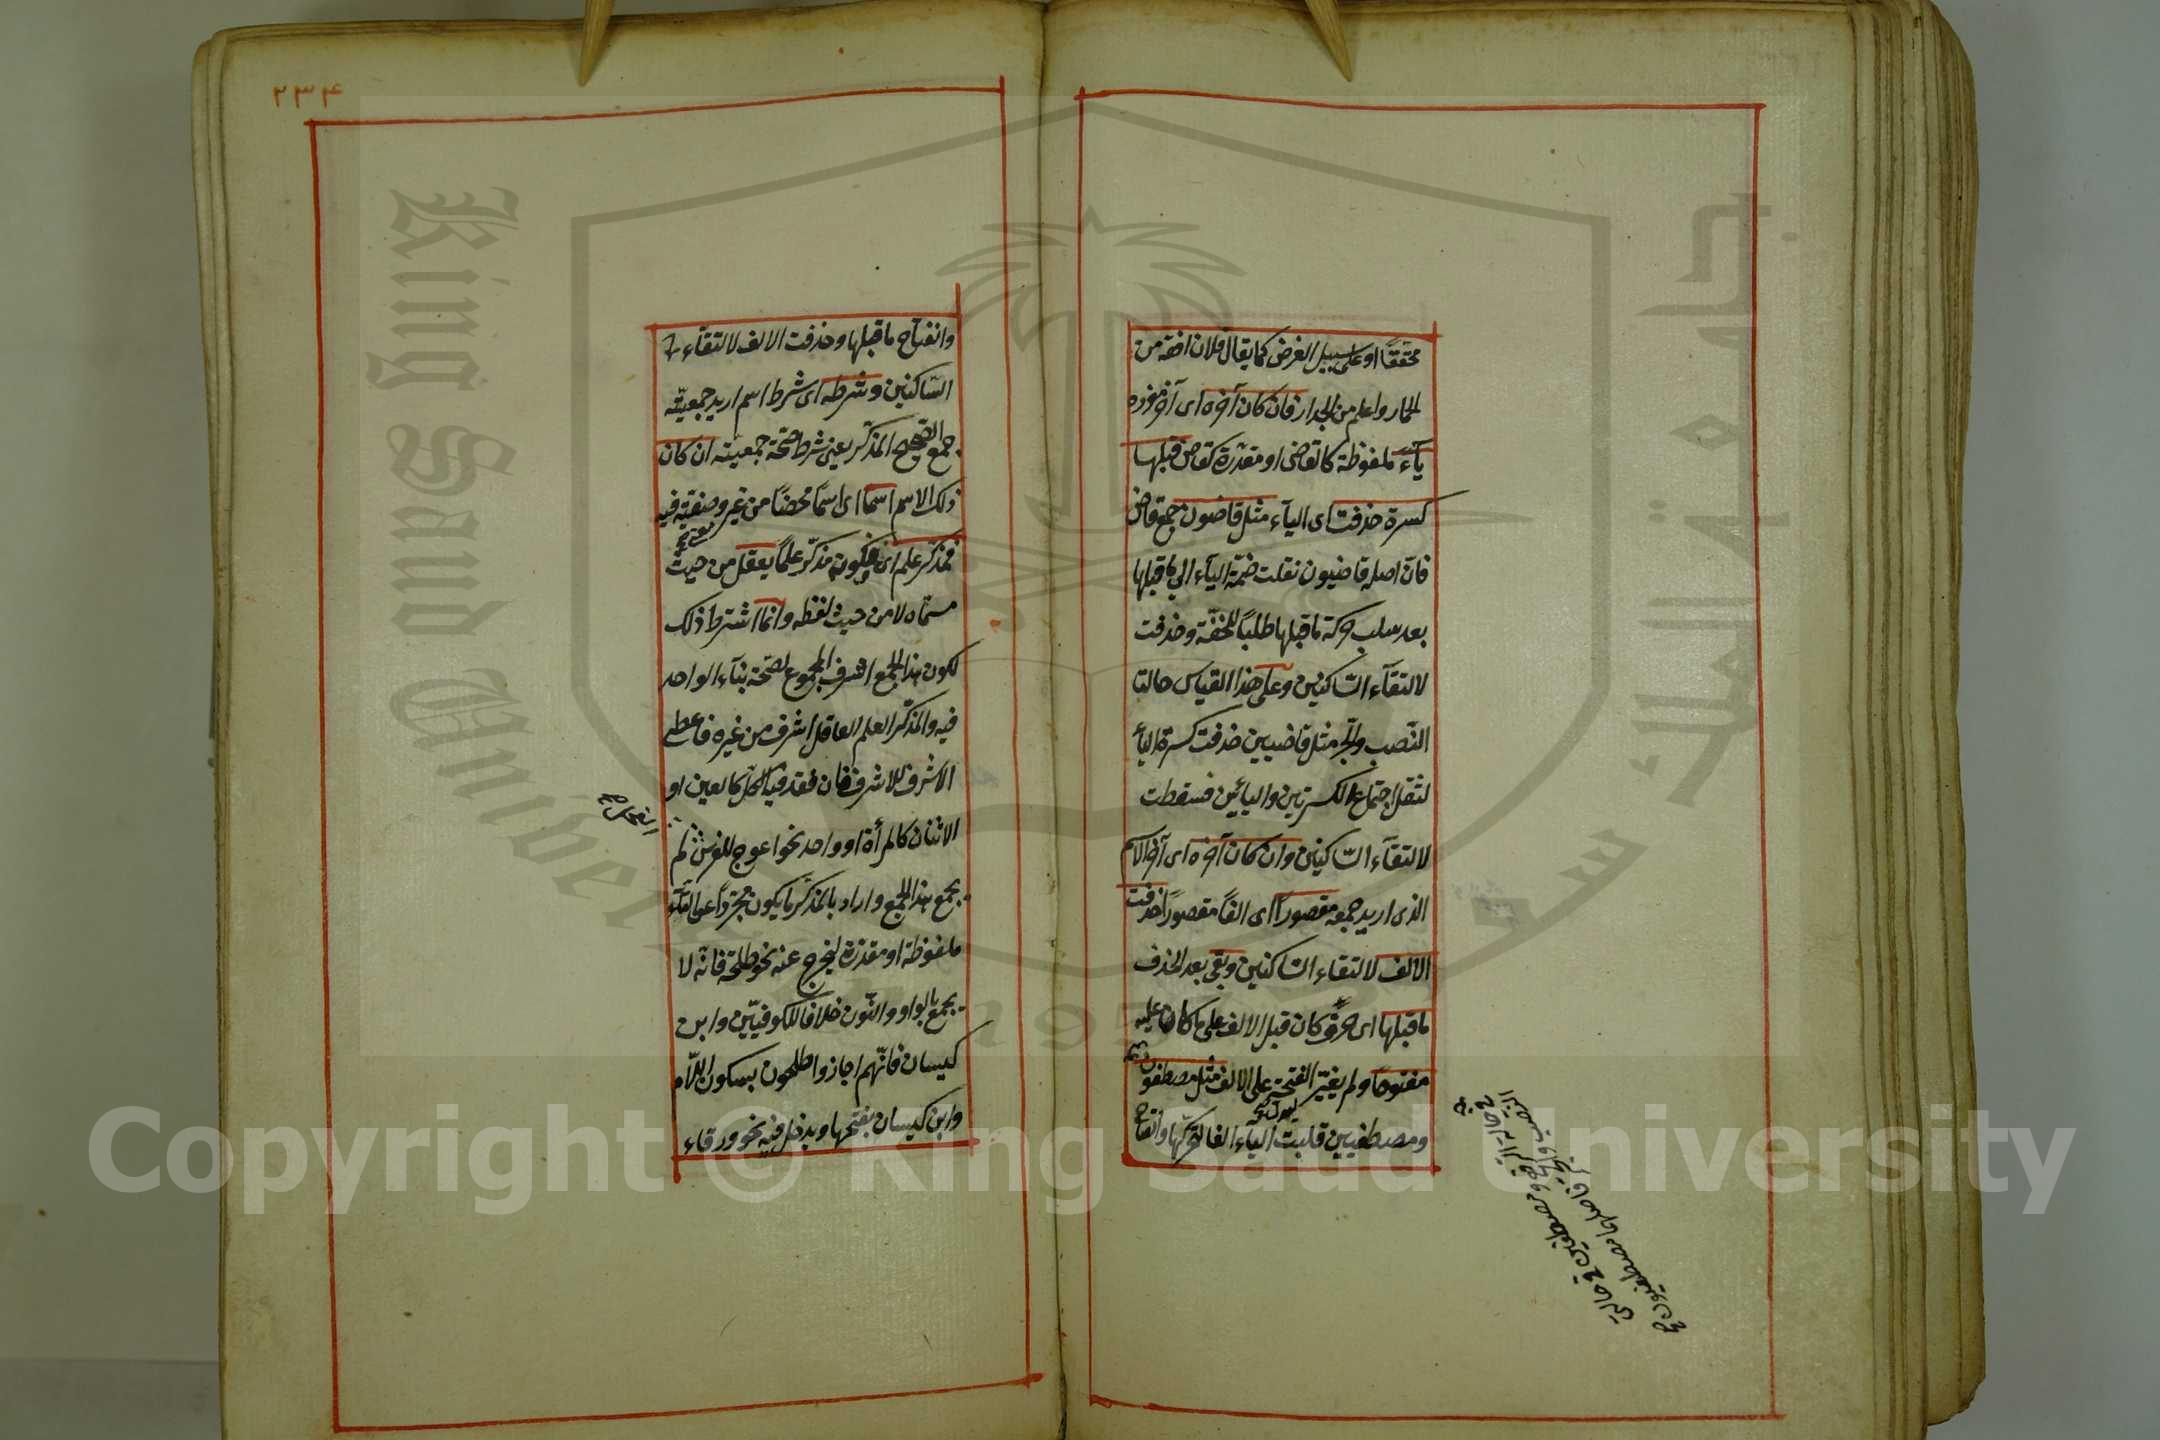 محققًا او على سبيل الفرض كما يقال فلان افقه من
الحمار واعلم من الجدار فان كان آخره اى آخر مفرده
يآء ملفوظة كالقاضى او مقدّرة كقاض قبلها
كسرة حذفت اى اليآء مثل قاضون جمع قاض
فانّ اصله قاضيون نقلت ضمّة اليآء الى ما قبلها
بعد سلب حركة ما قبلها طلبًا للخفّة وحذفت
لالتقآء السّاكنين وعلى هذا القياس حالتا
النّصب والجرّ مثل قاضيين حذفت كسرة اليآء
لثقل اجتماع الكسرتين واليائين فسقطت
لالتقآء السّاكنين وان كان آخره اى آخر الاسم
الذى اريد جمعه مقصورًا اى الفًا مقصورًا حذفت
الالف لالتقاء السّاكنين وبقى بعد الحذف
ما قبلها اى حرف كان قبل الالف على ما كان عليه
مفتوحًا ولم يغيّر الفتحة على الالف مثل مصطفون
ومصطفيين قلبت اليآء الفا لتحركها وانفتاح
٢٣٤
وانفتاح ما قبلها وحذفت الالف لالتقاء
السّاكنين وشرطه اى شرط اسم اريد جمعيّته
جمع الصّحيح المذكّر يعنى شرط صحّة جمعيته ان كان
ذلك الاسم اسمًا اى اسمًا محضًا من غير وصفيّة فيه
فمذكّر علم اى فكونه مذكّر علمًا يعقل من حيث
مسمّاه لا من حيث لفظه وانما اشترط ذلك
لكون هذا الجمع اشرف الجموع لصحّة بنآء الواحد
فيه والمذكّر العلم العاقل اشرف من غيره فاعطى
الاشرف للاشرف فان فقد فيه الكلّ كالعين او
الاثنان كالمرأة او واحد نحو اعوج للفرس لم
يجمع هذا الجمع واراد بالمذكّر ما يكون مجرّدًا عن التآء
ملفوظة او مقدّرة ليخرج عنه نحو طلحة فانّه لا
يجمع بالواو والنّون خلافا للكوفيّين وابن
كيسان فانّهم اجازوا طلحون بسكون اللّام
وابن كيسان بفتحها ويدخل فيه نحو ورقاء